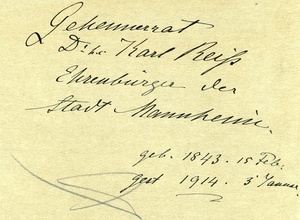 Geheimerrat
Dr. h.c. Karl Reiß
Ehrenbürger der
Stadt Mannheim.
geb. 1843. 15 Feb.
gest 1914. 3 Januar.